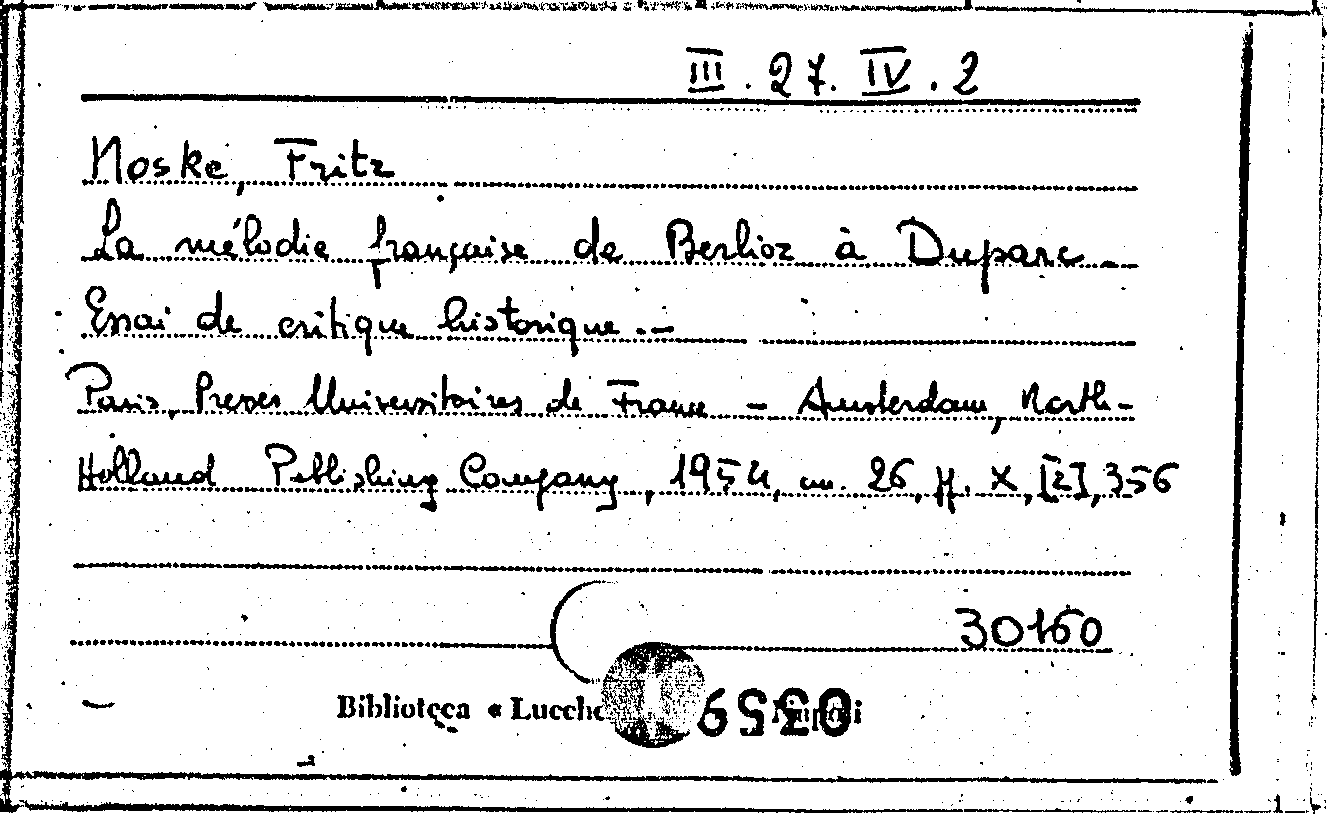 III.27.IV.2
Noske, Fritz
La mélodie française de Berlioz à Duparc.-
Essai de critique historique.-
Paris, Presses Universitaires de France - Amsterdam, North-
Holland Publishing Company, 1954, cm. 26, pp. X, [2], 356
30160
Biblioteca «